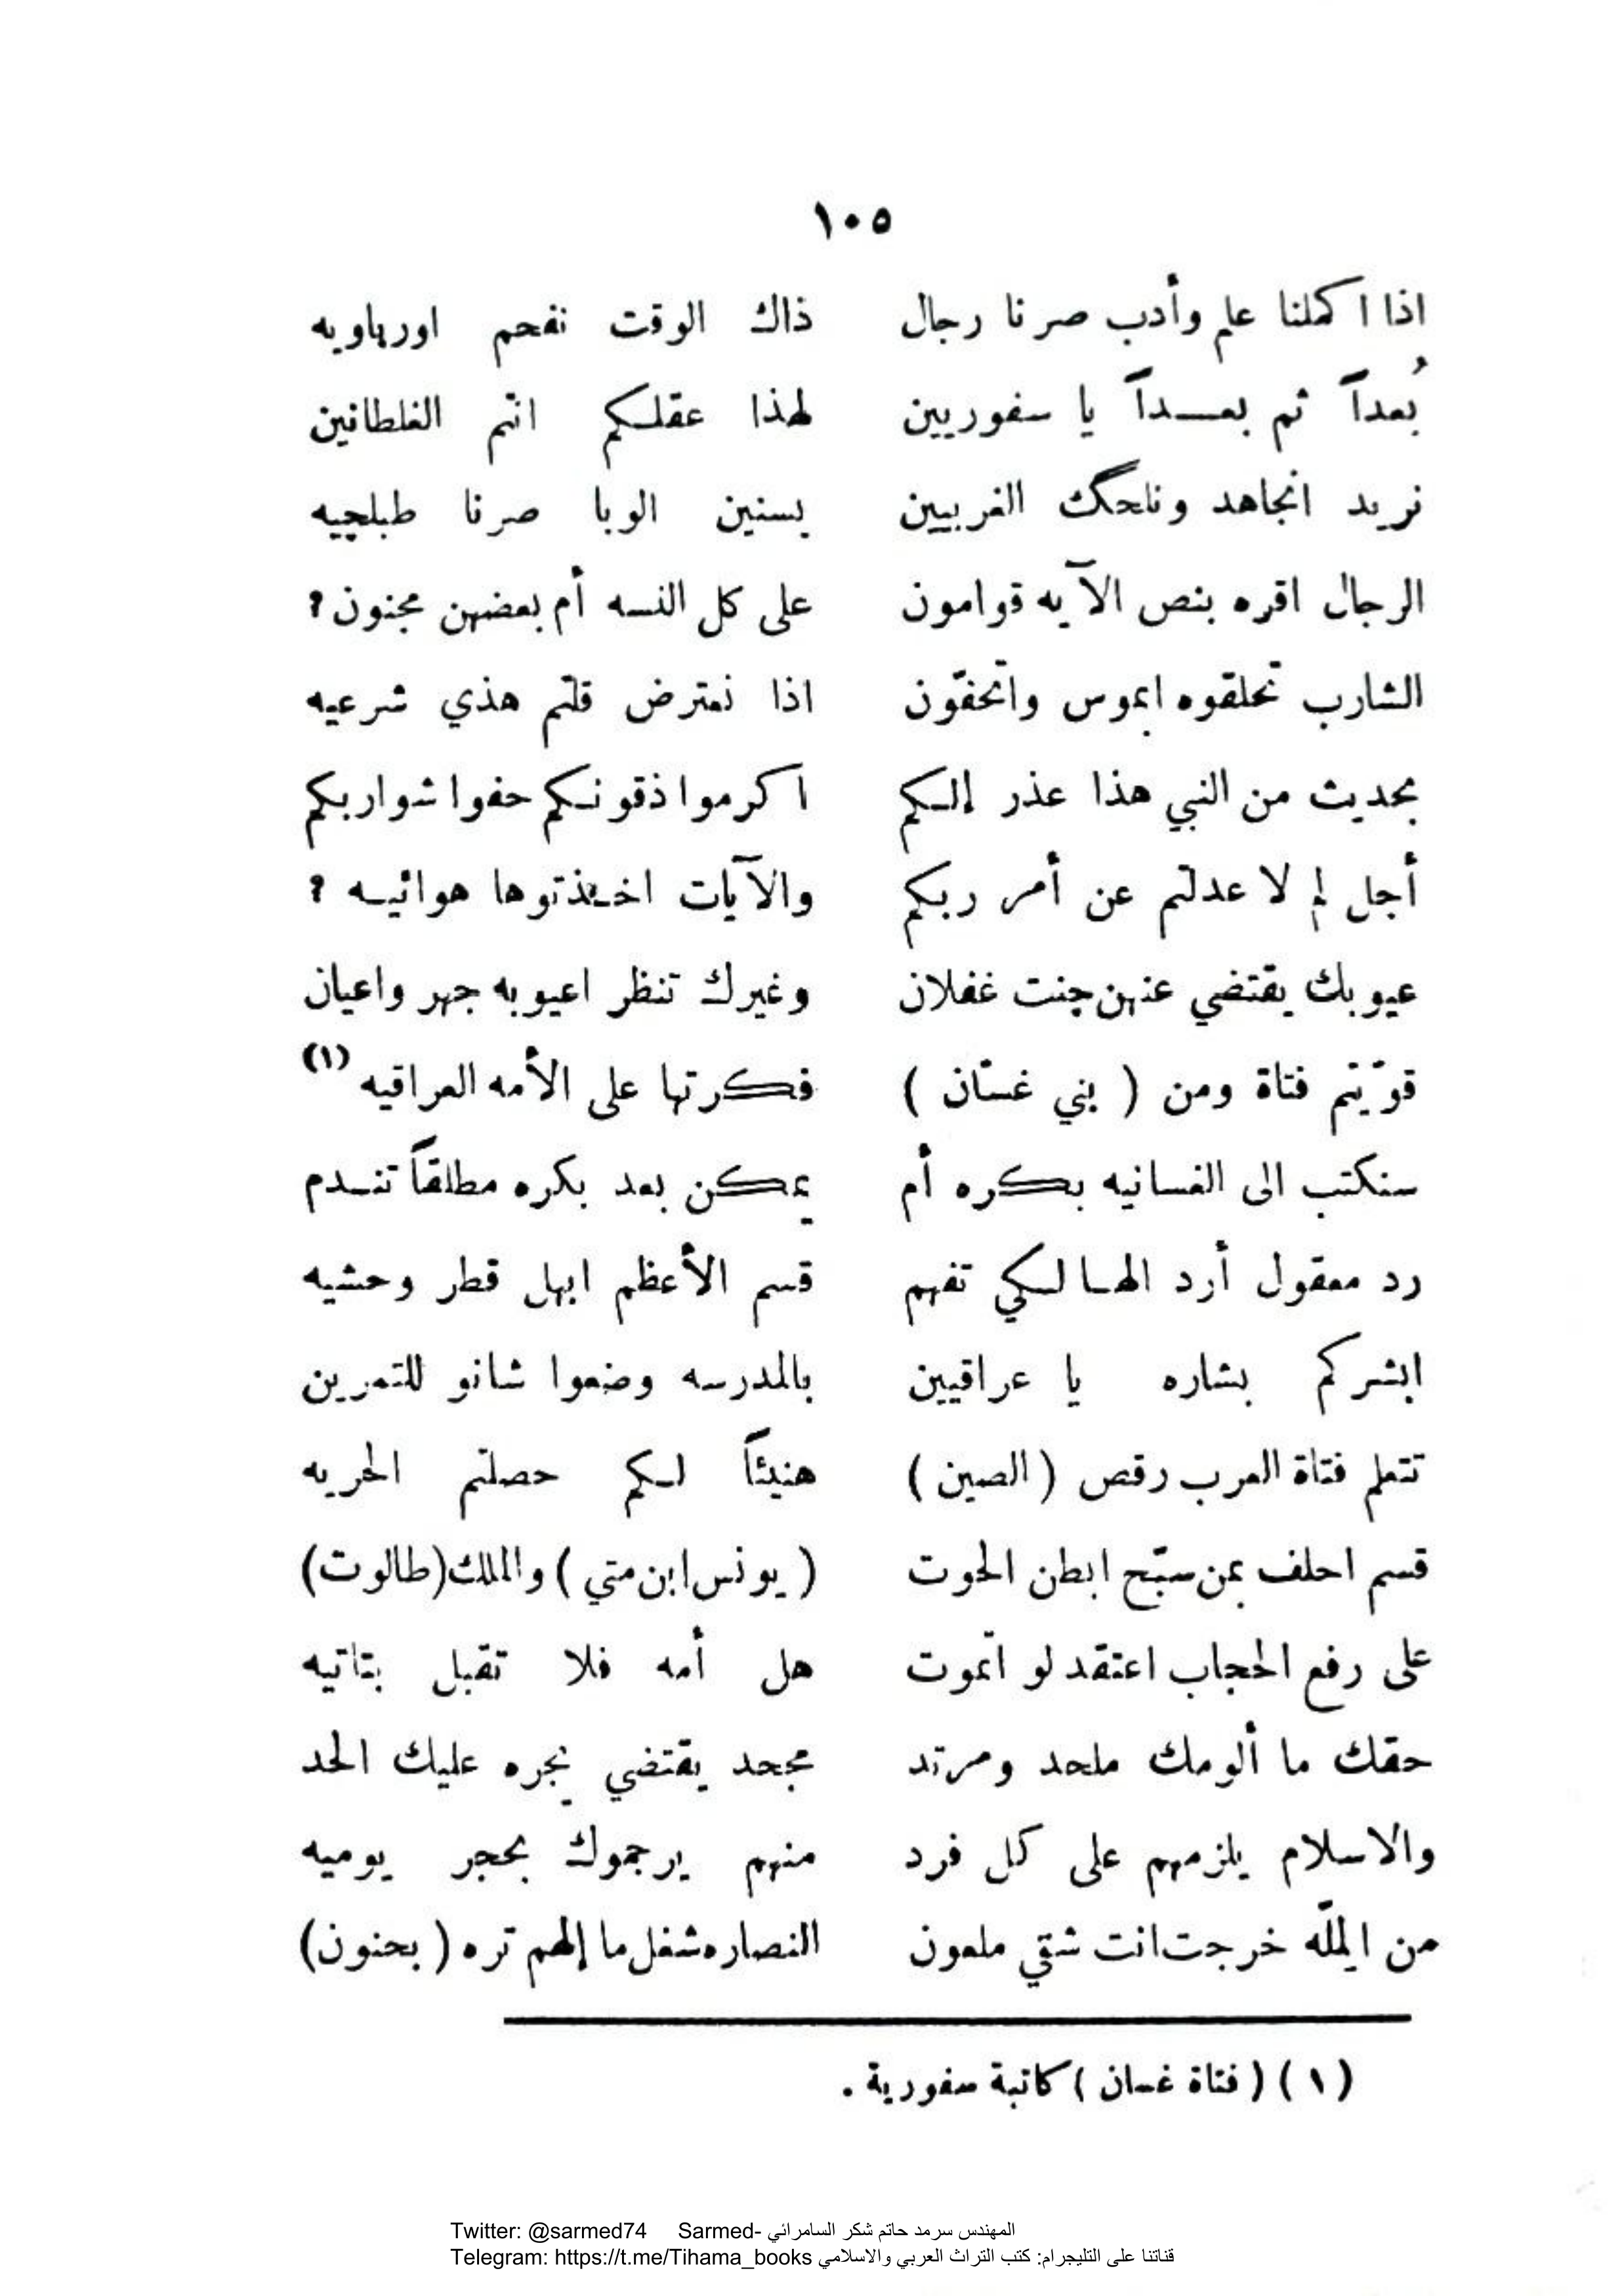 ١٠٥
اذا اكملنا علم وأدب صرنا رجال ذاك الوقت نفحم اورپاويه
بُعداً ثم بعــداً يا سفوريين لهذا عقلكم انتم الغلطانين
نريد انجاهد ونلحگ الغربيين بسنين الوبا صرنا طبلچيه
الرجال اقره بنص الآيه قوامون على كل النسه أم بعضهن مجنون ؟
الشارب تحلقوه ابموس واتحفّون اذا نعترض قلتم هذي شرعيه
بحديث من النبي هذا عذر إلكم اكرموا ذقونكم حفوا شواربكم
أجل لم لا عدلتم عن أمر ربكم والآيات اخذتوها هوائيه ؟
عيوبك يقتضي عنهن چنت غفلان وغيرك تنظر اعيوبه جهر واعيان
قوّيتم فتاة ومن ( بني غسّان ) فكرتها على الأمه العراقيه (١)
سنكتب الى الغسانيه بكره أم يمكن بعد بكره مطلقاً تندم
رد معقول أرد الها لكي تفهم قسم الأعظم ابهل قطر وحشيه
ابشركم بشاره يا عراقيين بالمدرسه وضعوا شانو للتمرين
تتعلم فتاة العرب رقص ( الصين ) هنيئاً لكم حصلتم الحريه
قسم احلف بمن سبّح ابطن الحوت ( يونس ابن متي ) والملك ( طالوت )
على رفع الحجاب اعتقد لو اتموت هل أمه فلا تقبل بتاتيه
حقك ما ألومك ملحد ومرتد مجحد يقتضي نجره عليك الحد
والاسلام يلزمهم على كل فرد منهم يرجموك بحجر يوميه
من الملّه خرجت انت شقي ملعون النصاره شغل ما إلهم تره ( بحنون )
( ١ ) ( فتاة غسان ) كاتبة سفورية .
Twitter: @sarmed74 Sarmed- المهندس سرمد حاتم شكر السامرائي
Telegram: https://t.me/Tihama_books قناتنا على التليجرام: كتب التراث العربي والاسلامي